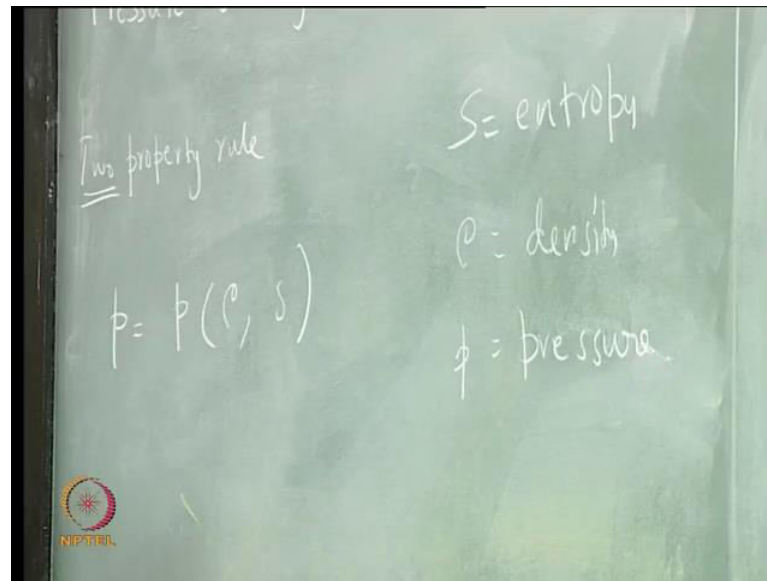 Pressure
Two property rule
p = p(ρ, s)
S = entropy
ρ = density
p = pressure
NPTEL